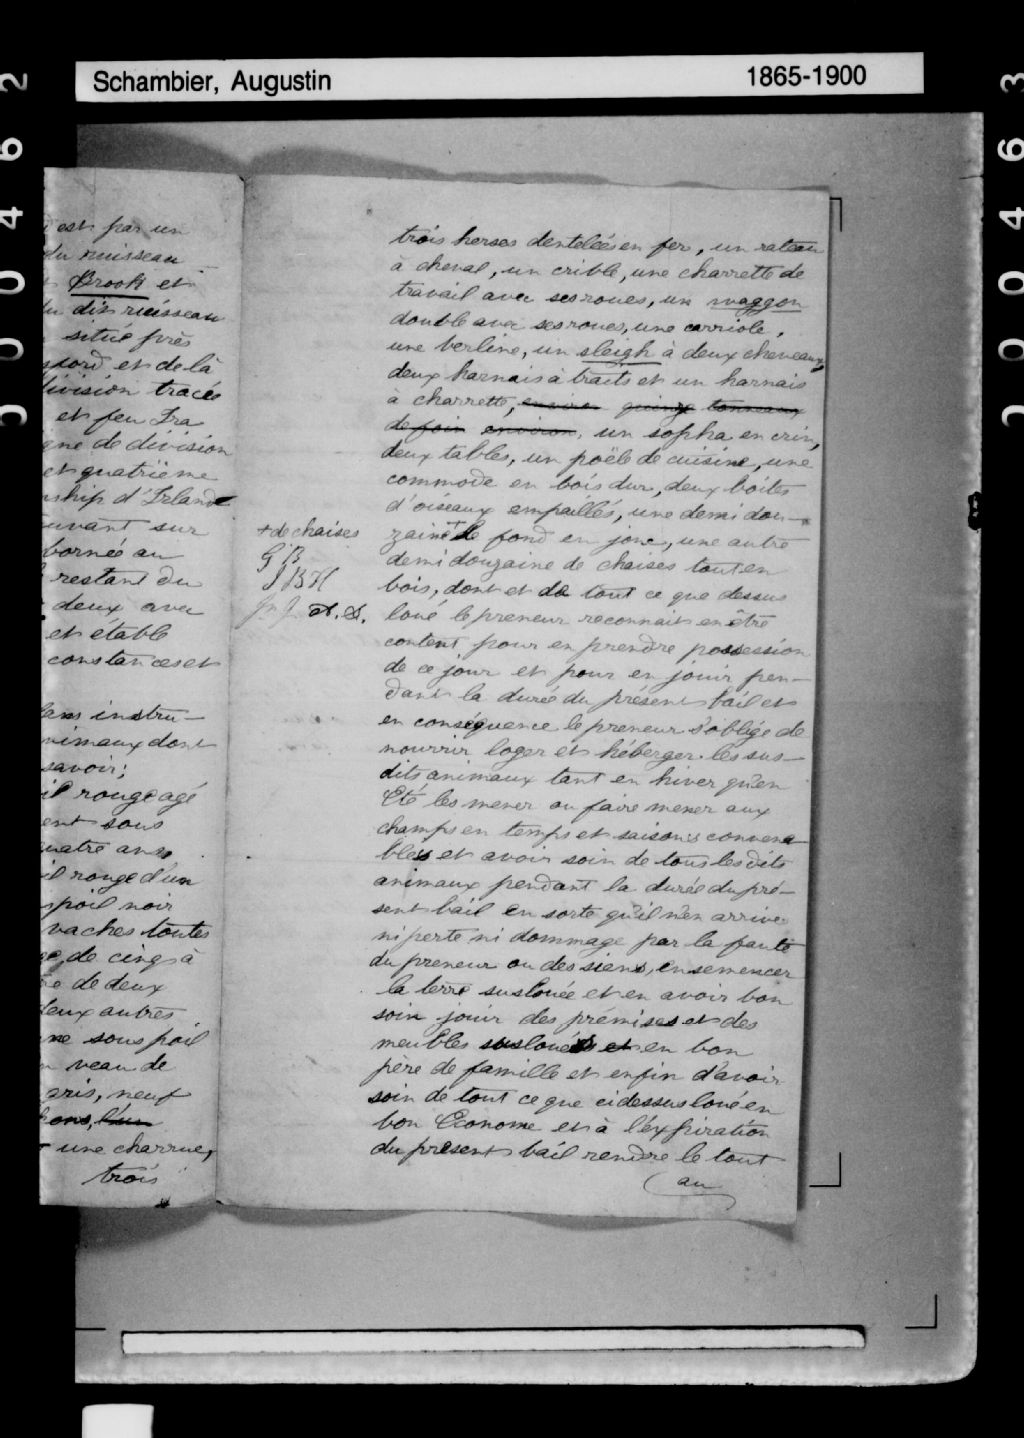 Schambier, Augustin
1865-1900
00462
00463
est par un
du ruisseau
Brook et
du dit ruisseau
situé près
nord et de là
division tracée
et feu Fra
igne de division
et quatrième
nship d'Irlande
uvant sur
bornée au
restant du
deux avec
et étable
constances et
dans instru-
nimaux dont
savoir;
il rouge agé
ent sous
quatre ans
il rouge d'un
poil noir
vaches toutes
ge, de cinq à
re de deux
deux autres
ne sous poil
n veau de
gris, neuf
hons, l'un
une charrue,
trois
trois herses dentelées en fer, un rateau
à cheval, un crible, une charrette de
travail avec ses roues, un waggon
double avec ses roues, une carriole,
une berline, un sleigh à deux cheveaux,
deux harnais à traits et un harnais
a charrette, environ quinze tonneaux
de foin environ, un sopha en crin,
deux tables, un poële de cuisine, une
commode en bois dur, deux boites
d'oiseaux empaillés, une demi dou-
zaine + de fond en jonc, une autre
demi douzaine de chaises tout en
bois, dont et de tout ce que dessus
loué le preneur reconnait en être
content pour en prendre possession
de ce jour et pour en jouir pen-
dant la durée du présent bail et
en conséquence le preneur s'oblige de
nourrir loger et héberger les sus-
dits animaux tant en hiver qu'en
Eté les mener ou faire mener aux
champs en temps et saisons convena
bles et avoir soin de tous les dits
animaux pendant la durée du pré-
sent bail en sorte qu'il n'en arrive
ni perte ni dommage par la faute
du preneur ou des siens, ensemencer
la terre suslouée et en avoir bon
soin jouir des prémises et des
meubles susloués et en bon
père de famille et enfin d'avoir
soin de tout ce que cidessus loué en
bon Econome et à l'éxpiration
du present bail rendre le tout
au
+ de chaises
G B
J B H
A. S.